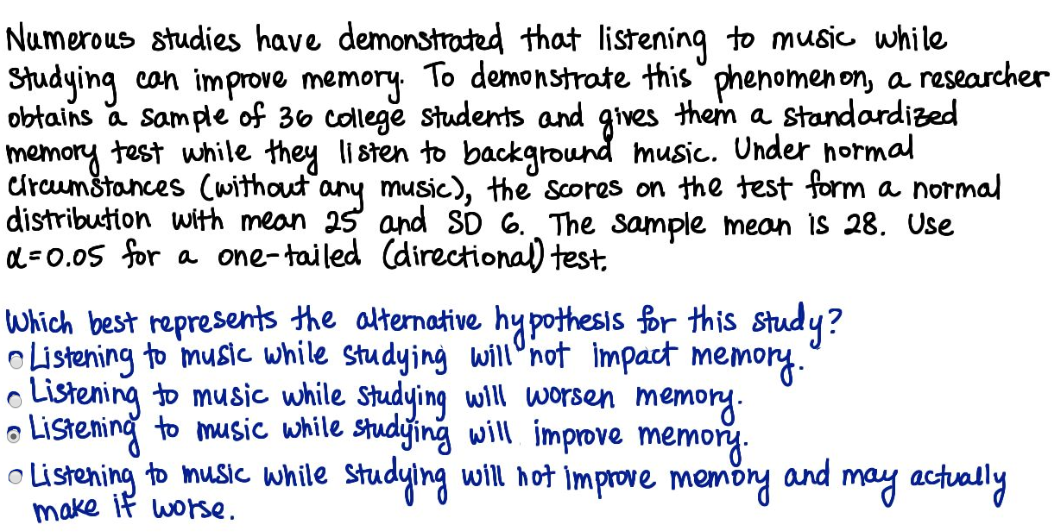 Numerous studies have demonstrated that listening to music while
Studying can improve memory. To demonstrate this phenomenon, a researcher
obtains a sample of 36 college students and gives them a standardized
memory test while they listen to background music. Under normal
circumstances (without any music), the scores on the test form a normal
distribution with mean 25 and SD 6. The sample mean is 28. Use
α=0.05 for a one-tailed (directional) test.
Which best represents the alternative hypothesis for this study?
Listening to music while studying will not impact memory.
Listening to music while studying will worsen memory.
Listening to music while studying will improve memory.
Listening to music while studying will not improve memory and may actually
make it worse.